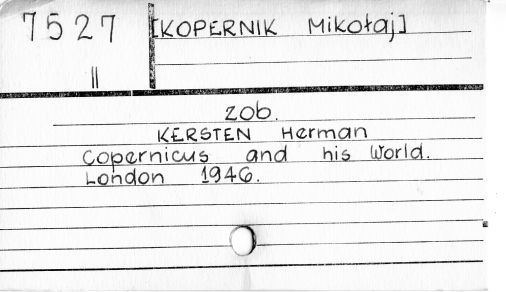 7527 [KOPERNIK Mikołaj]
II
zob.
KERSTEN Herman
Copernicus and his World.
London 1946.